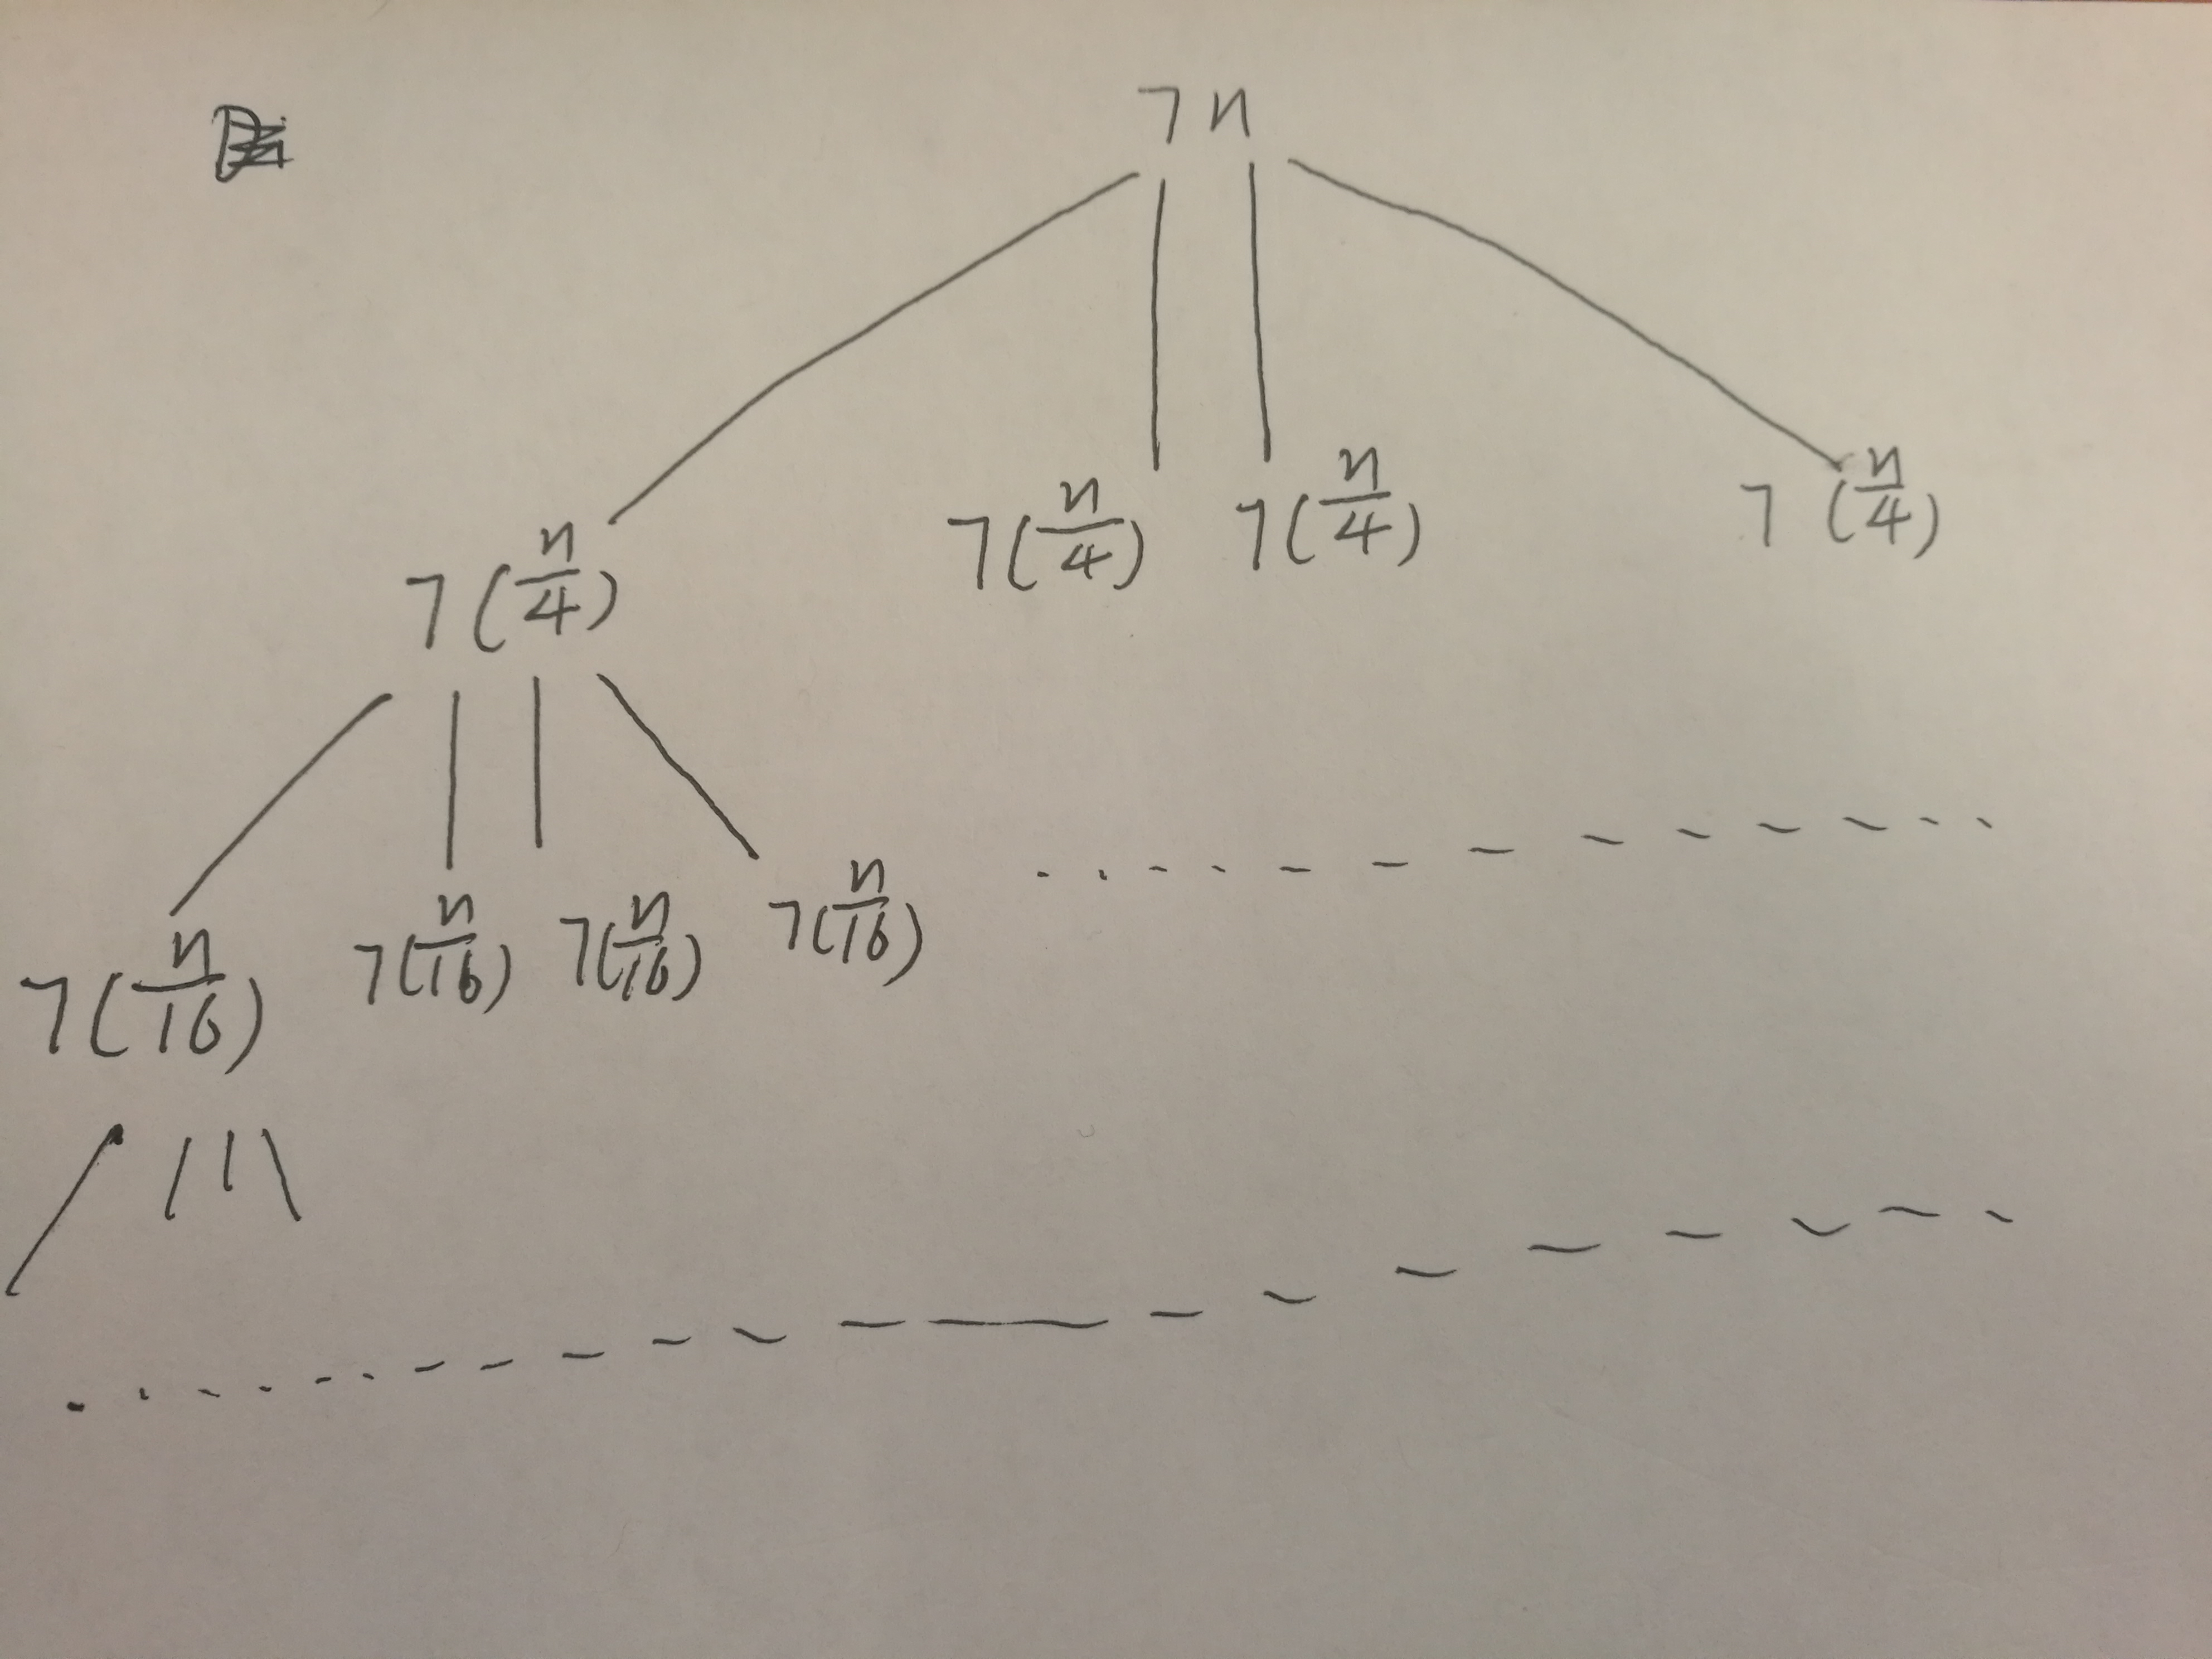 7n
7(n/4) 7(n/4) 7(n/4) 7(n/4)
7(n/16) 7(n/16) 7(n/16) 7(n/16)